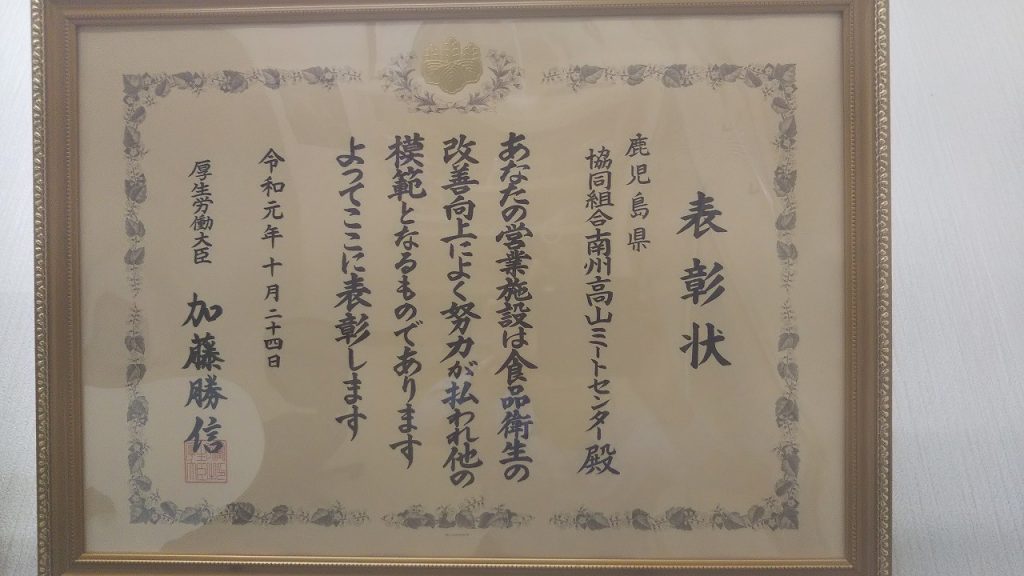 表彰状
鹿児島県
協同組合南州高山ミートセンター殿
あなたの営業施設は食品衛生の
改善向上によく努力が払われ他の
模範となるものであります
よってここに表彰します
令和元年十月二十四日
厚生労働大臣 加藤勝信